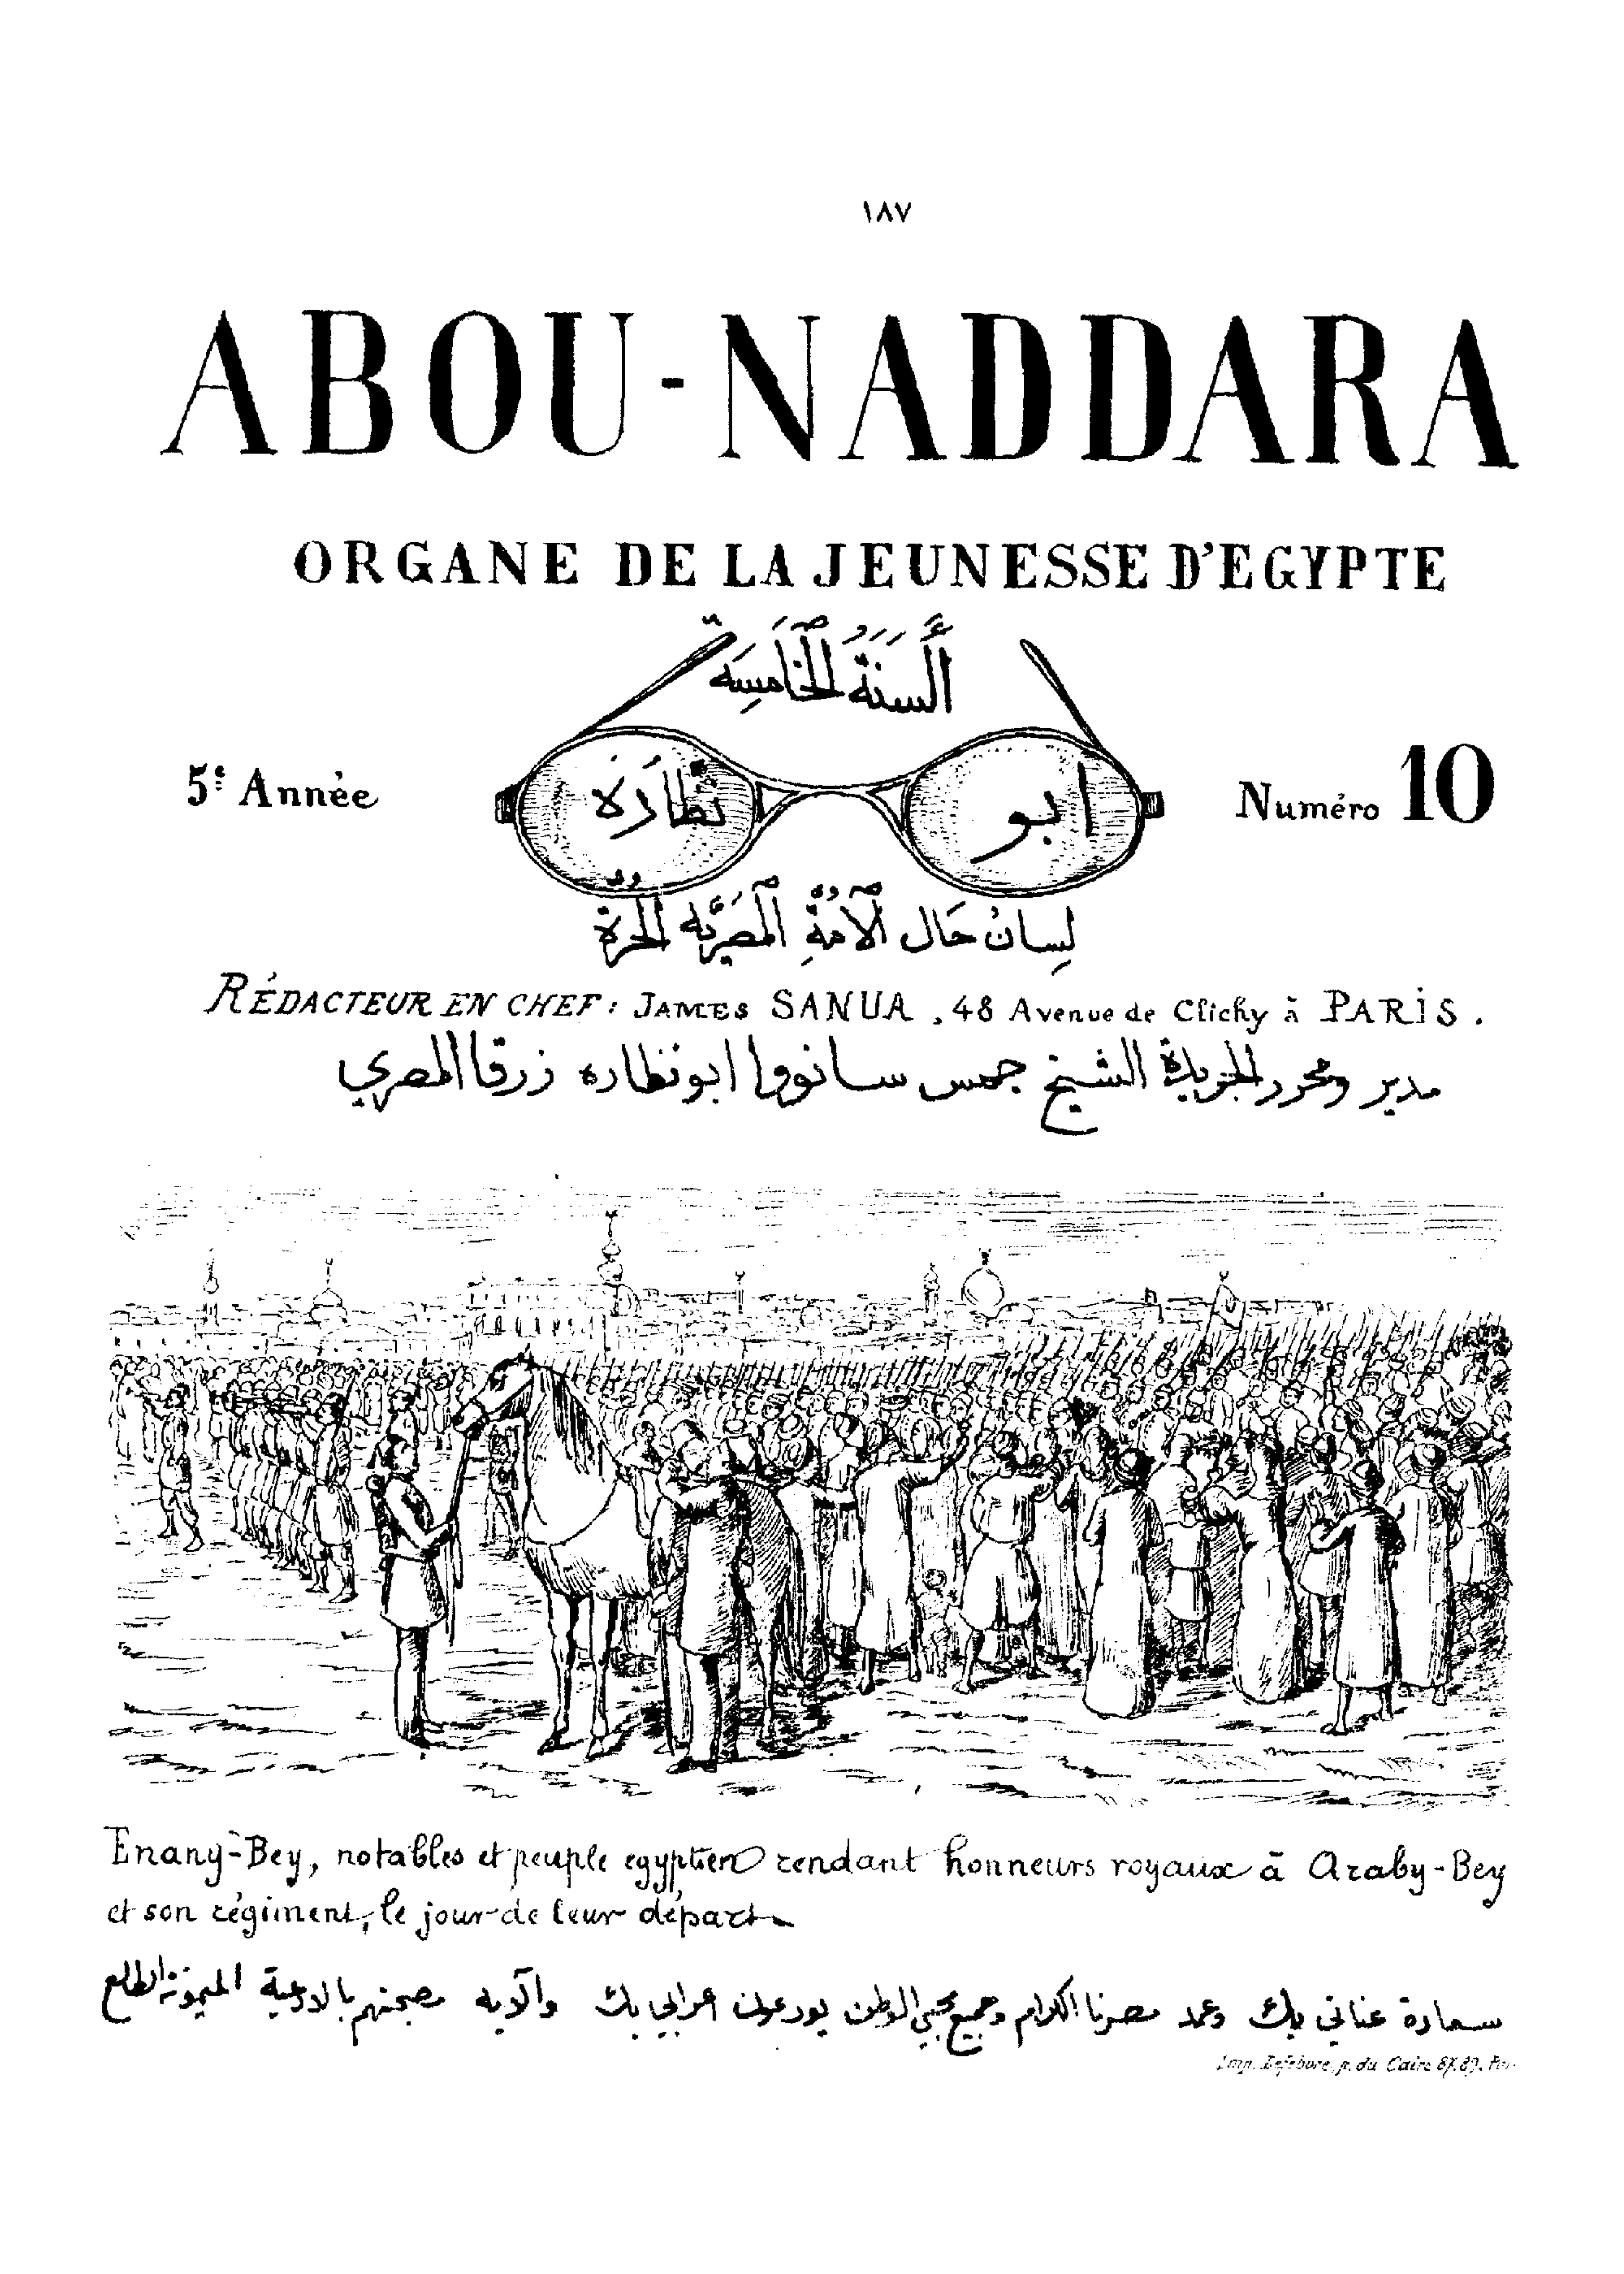 ١٨٧
ABOU-NADDARA
ORGANE DE LA JEUNESSE D'EGYPTE
أَلسَنَةُ الخَامِسَة
5e Année
ابو نظارة
Numéro 10
لِسانُ حَال الأمةِ المصريّه الحُرة
RÉDACTEUR EN CHEF : JAMES SANUA , 48 Avenue de Clichy à PARIS .
مدير ومحرر الجريدة الشيخ جمس سانووا ابونظاره زرقا المصري
Enany-Bey, notables et peuple egyptien rendant honneurs royaux à Araby-Bey
et son régiment, le jour de leur départ
سعادة عناني بيك وعمد مصرنا الكرام وجميع محبي الوطن يودعون عرابي بك وآلايه مصحتهم بالادعية الميمونة الطالع
Imp. Lefebvre, p. du Caire 87.89.